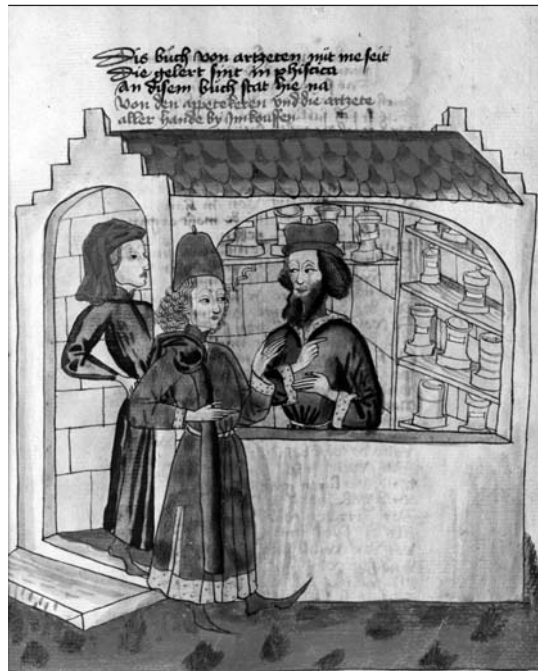 Dis bůch von artzeten mit me seit
Die gelert sint in phisica
An disem bůch stat hie na
Von den appotekeren vnd die artzete
aller hande by